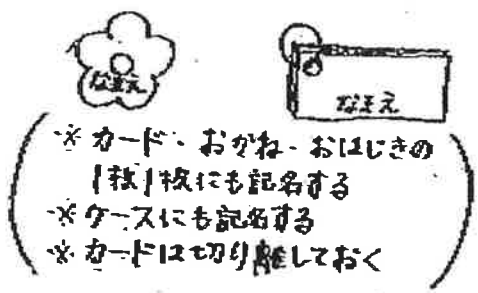 なまえ
なまえ
※カード・おかね・おはじきの
1枚1枚にも記名する
※ケースにも記名する
※カードは切り離しておく